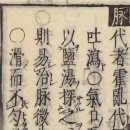 脈
代者霍亂代
吐瀉○氣口
以鹽湯探之
則易治脈微
○滑而不匀